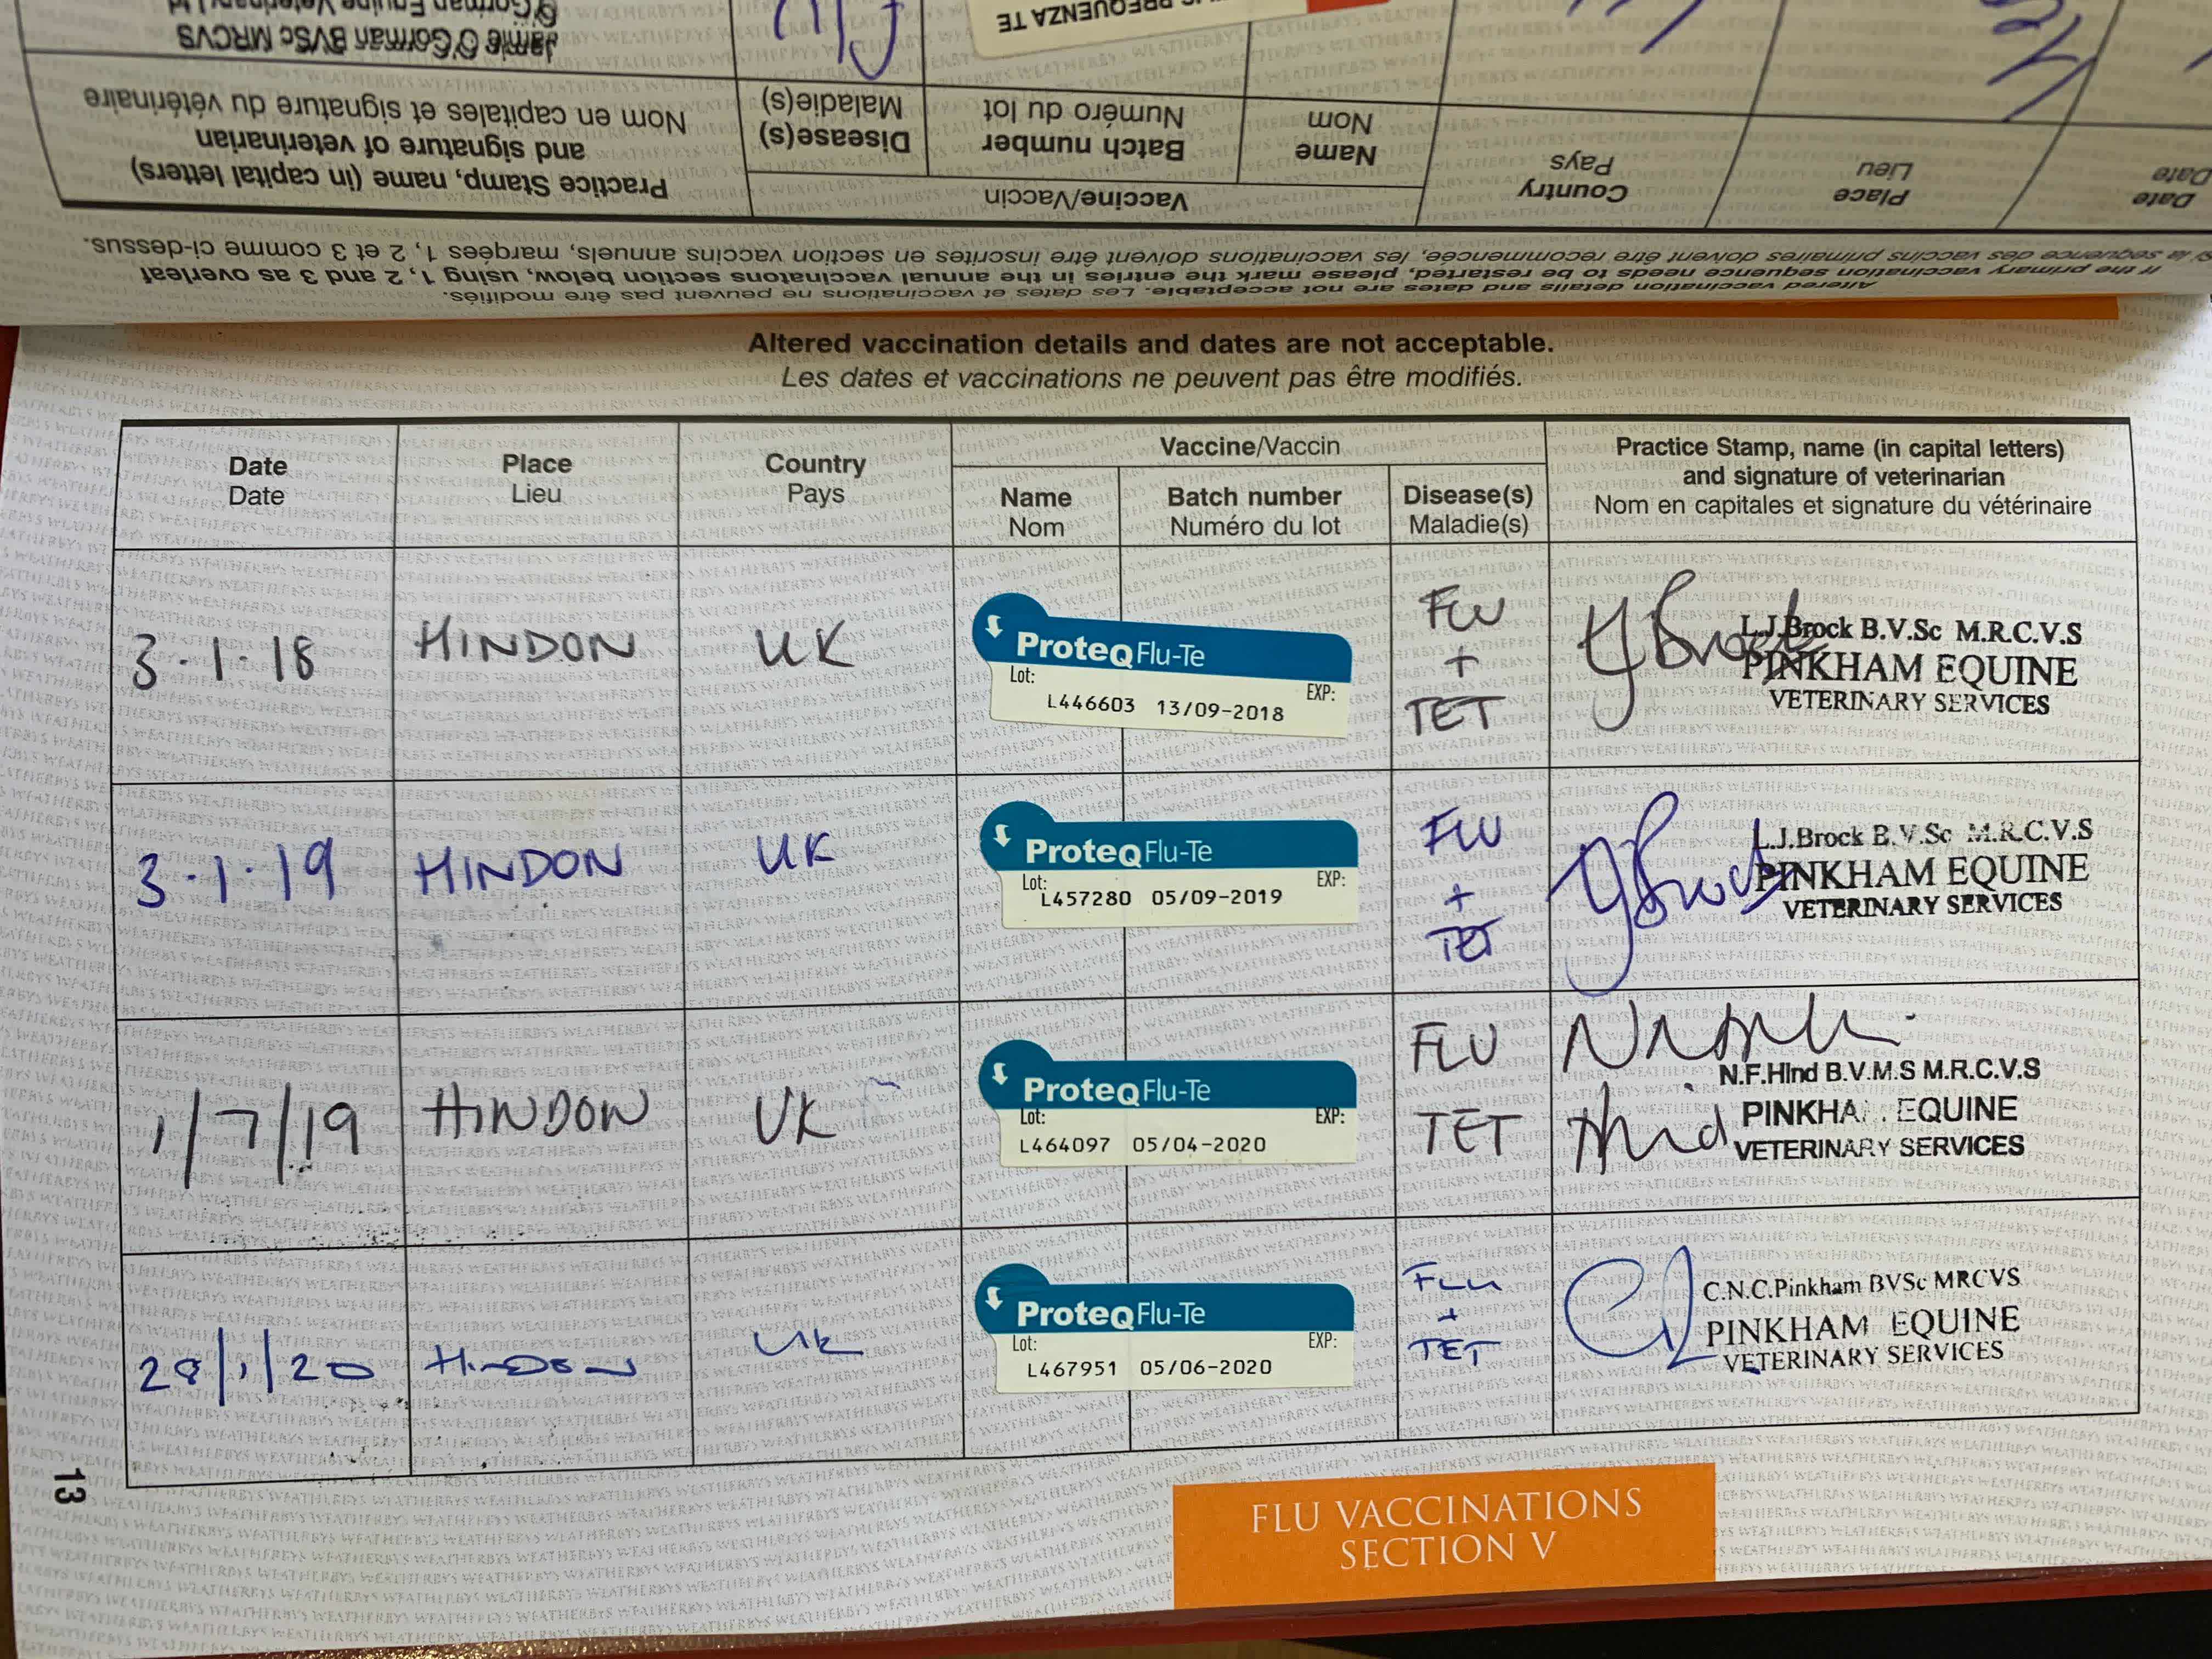 Jamie O'Gorman BVSc MRCVS
O'Gorman Equine Veterinary Ltd
Practice Stamp, name (in capital letters)
and signature of veterinarian
Nom en capitales et signature du vétérinaire
Disease(s)
Maladie(s)
Batch number
Numéro du lot
Name
Nom
Vaccine/Vaccin
Country
Pays
Place
Lieu
Date
Date
Altered vaccination details and dates are not acceptable. Les dates et vaccinations ne peuvent pas être modifiés.
If the primary vaccination sequence needs to be restarted, please mark the entries in the annual vaccinatons section below, using 1, 2 and 3 as overleaf
Si la séquence des vaccins primaires doivent être recommencée, les vaccinations doivent être inscrites en section vaccins annuels, marqées 1, 2 et 3 comme ci-dessus.
Altered vaccination details and dates are not acceptable.
Les dates et vaccinations ne peuvent pas être modifiés.
Date
Date
Place
Lieu
Country
Pays
Vaccine/Vaccin
Name
Nom
Batch number
Numéro du lot
Disease(s)
Maladie(s)
Practice Stamp, name (in capital letters)
and signature of veterinarian
Nom en capitales et signature du vétérinaire
3.1.18
HINDON
UK
ProteqFlu-Te
Lot: EXP:
L446603 13/09-2018
FLU
+
TET
L.J.Brock B.V.Sc M.R.C.V.S
PINKHAM EQUINE
VETERINARY SERVICES
3.1.19
HINDON
UK
ProteqFlu-Te
Lot: EXP:
L457280 05/09-2019
FLU
+
TET
L.J.Brock B.V.Sc M.R.C.V.S
PINKHAM EQUINE
VETERINARY SERVICES
1/7/19
HINDON
UK
ProteqFlu-Te
Lot: EXP:
L464097 05/04-2020
FLU
TET
N.F.Hind B.V.M.S M.R.C.V.S
PINKHAM EQUINE
VETERINARY SERVICES
28/1/20
HINDON
UK
ProteqFlu-Te
Lot: EXP:
L467951 05/06-2020
FLU
+
TET
C.N.C.Pinkham BVSc MRCVS
PINKHAM EQUINE
VETERINARY SERVICES
13
FLU VACCINATIONS
SECTION V